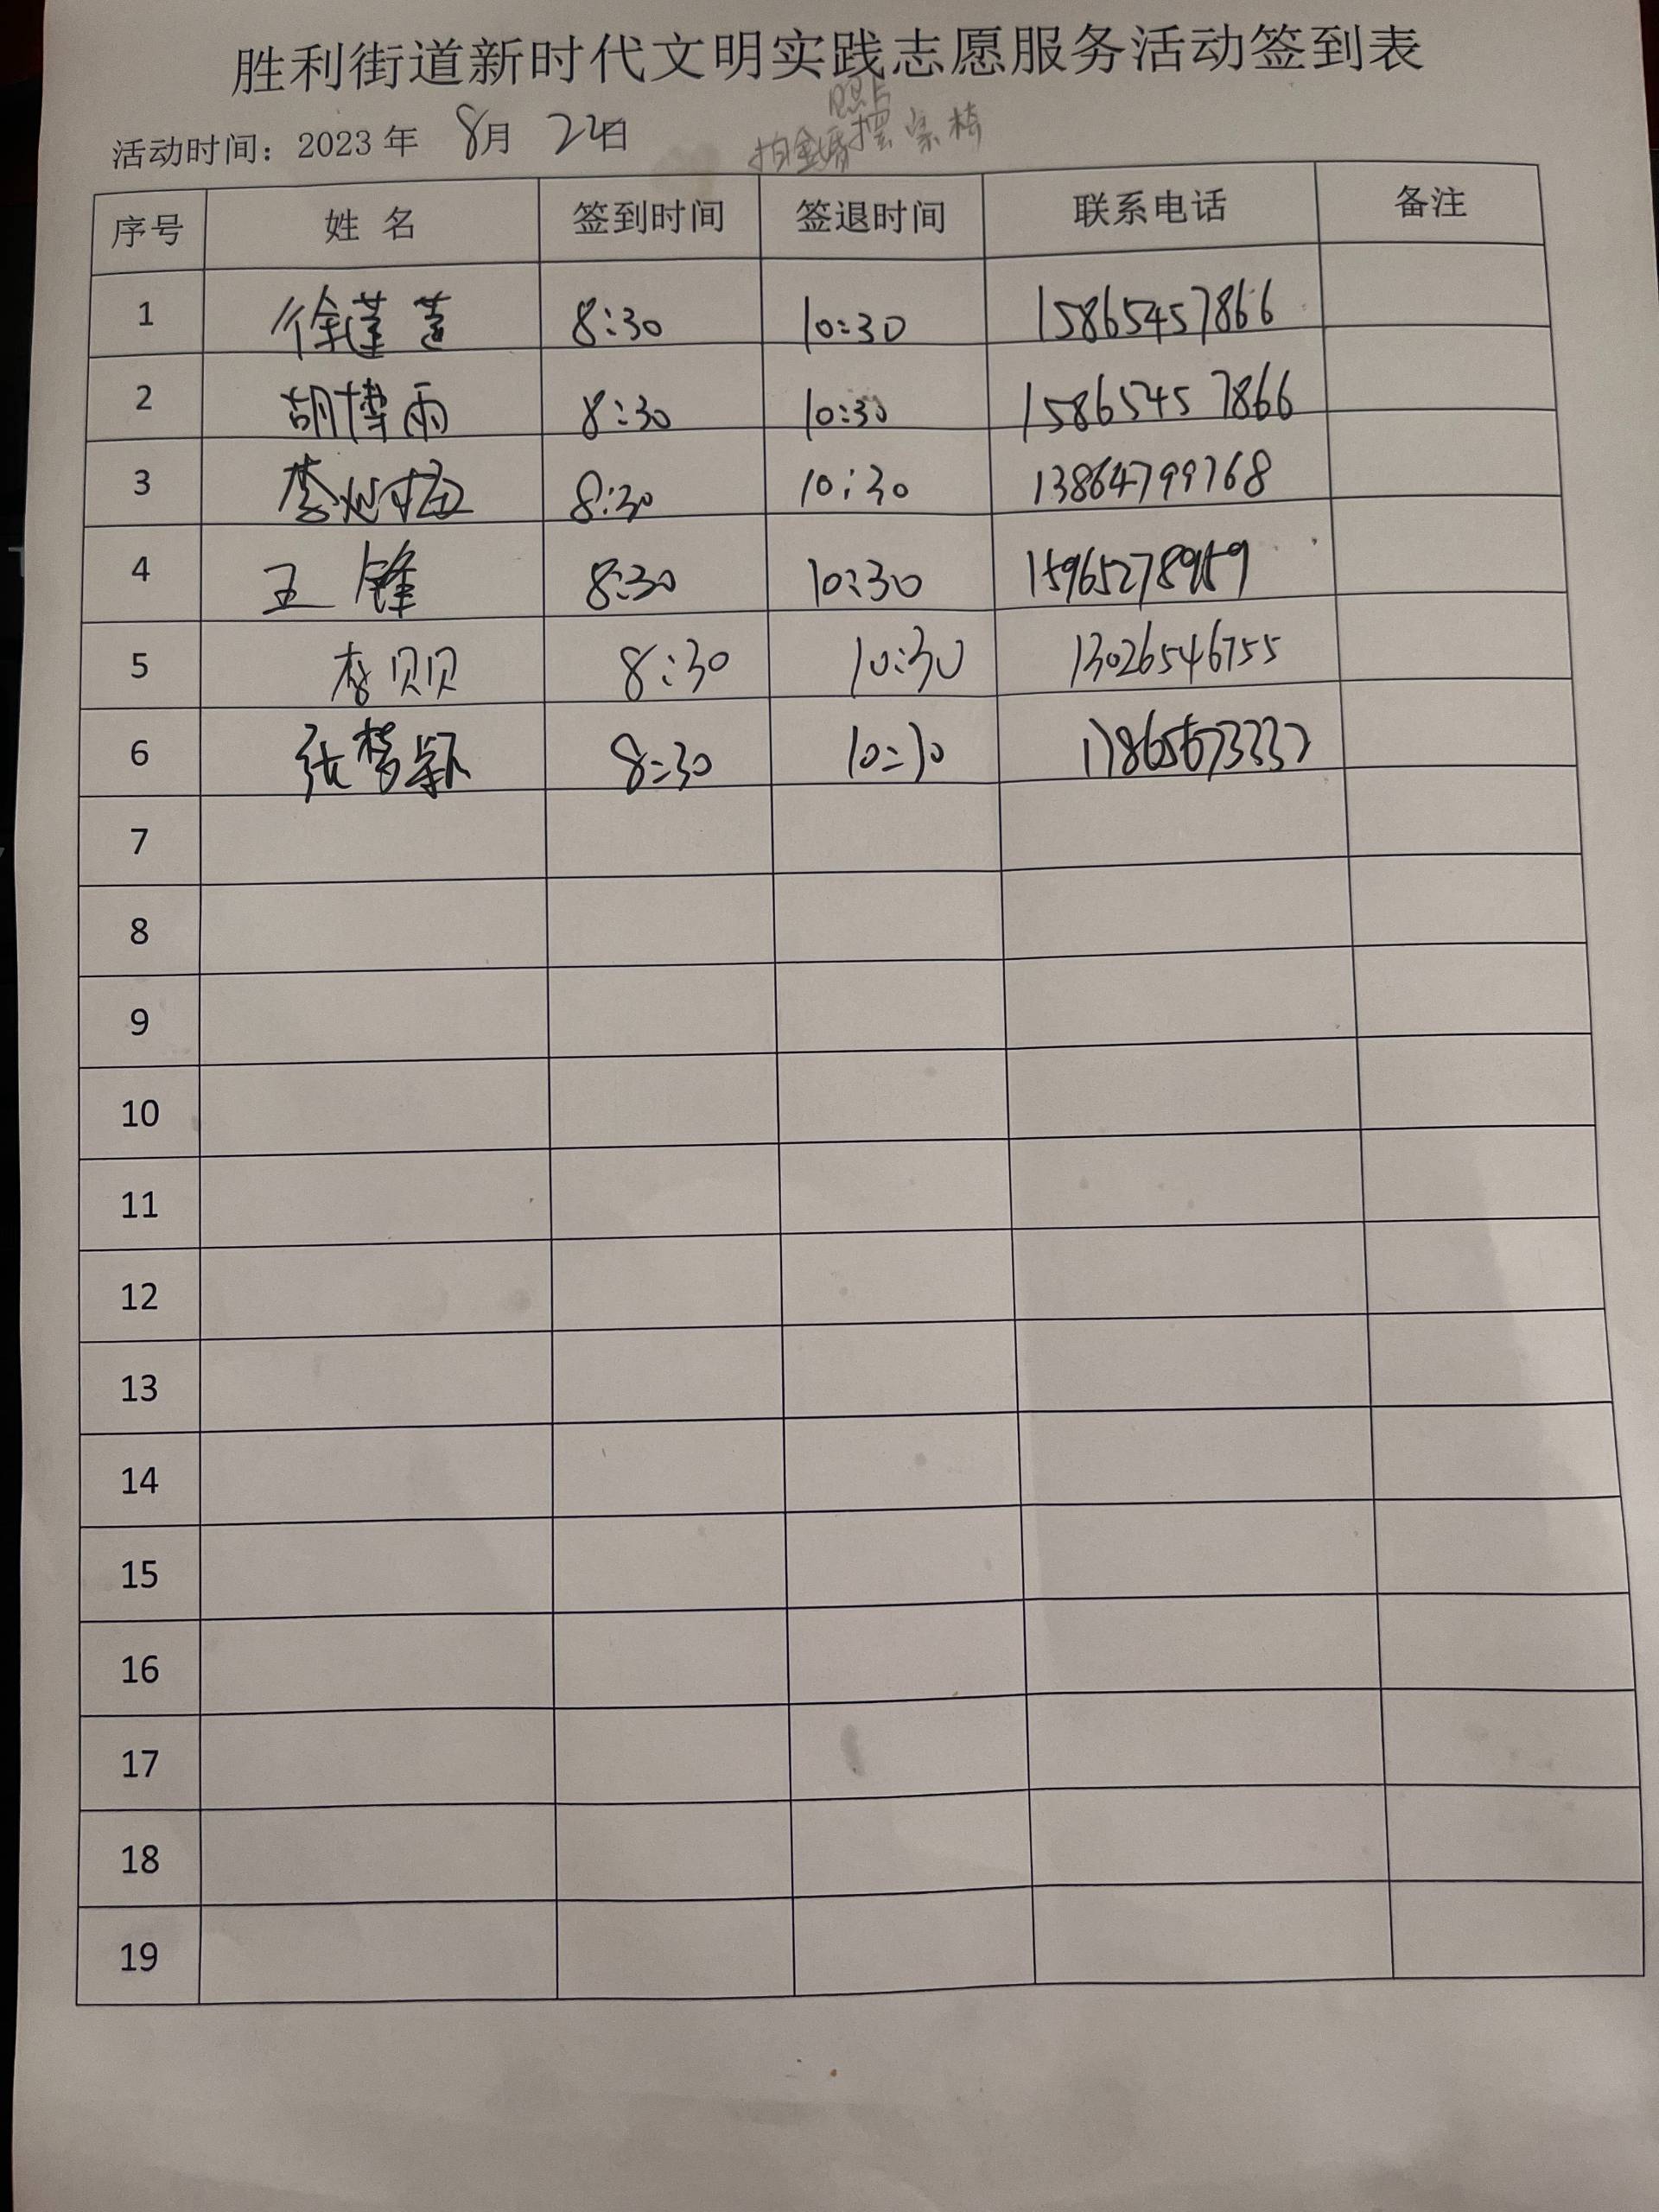 胜利街道新时代文明实践志愿服务活动签到表
照片
活动时间：2023年 8月 22日 拍金婚 摆桌椅
序号 姓名 签到时间 签退时间 联系电话 备注
1 徐莲莲 8:30 10:30 15865457866
2 胡博雨 8:30 10:30 15865457866
3 李 梅 8:30 10:30 13864799768
4 王锋 8:30 10:30
5 李贝贝 8:30 10:30 13026546755
6 张梦颖 8:30 10:30
7
8
9
10
11
12
13
14
15
16
17
18
19